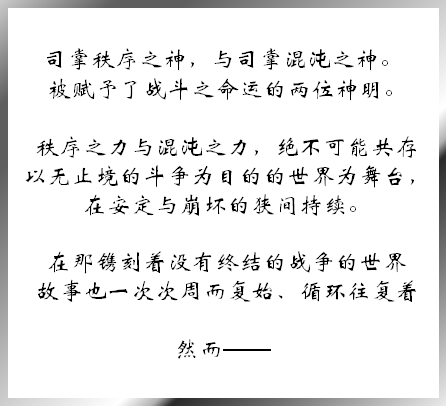 司掌秩序之神，与司掌混沌之神。
被赋予了战斗之命运的两位神明。
秩序之力与混沌之力，绝不可能共存
以无止境的斗争为目的的世界为舞台，
在安定与崩坏的狭间持续。
在那镌刻着没有终结的战争的世界
故事也一次次周而复始、循环往复着
然而——